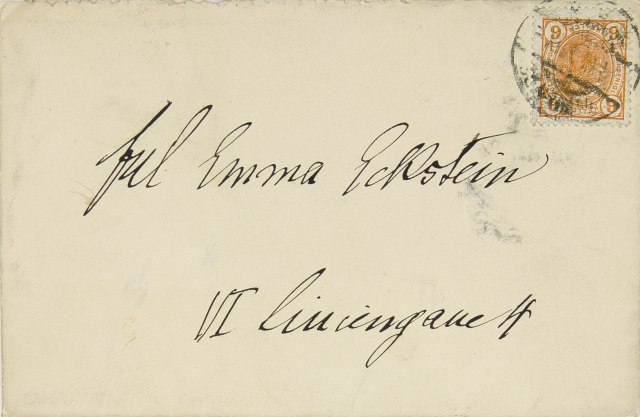 9 9
9 9
Frl Emma Eckstein
VI Liniengasse 4